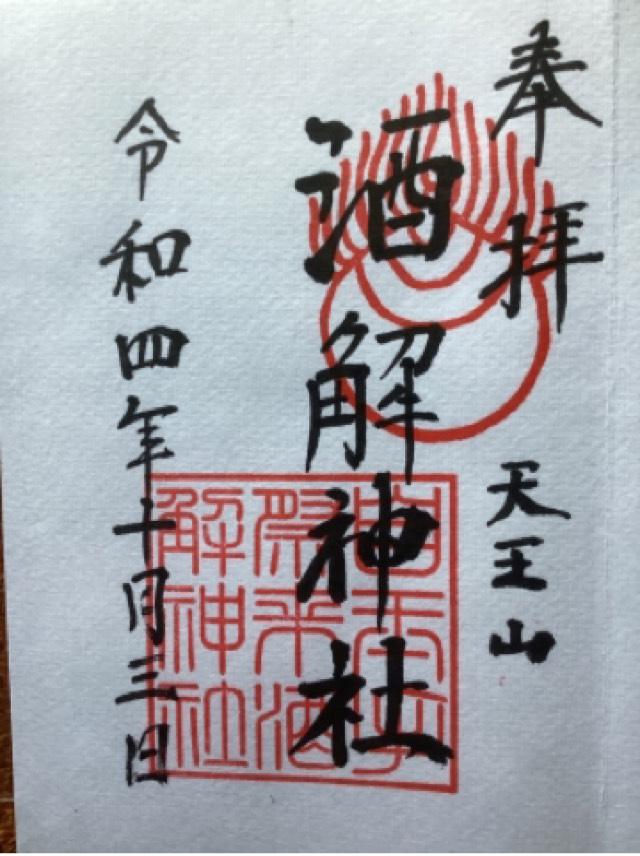 奉拝
天王山
酒解神社
自玉手
祭来酒
解神社
令和四年十月三日